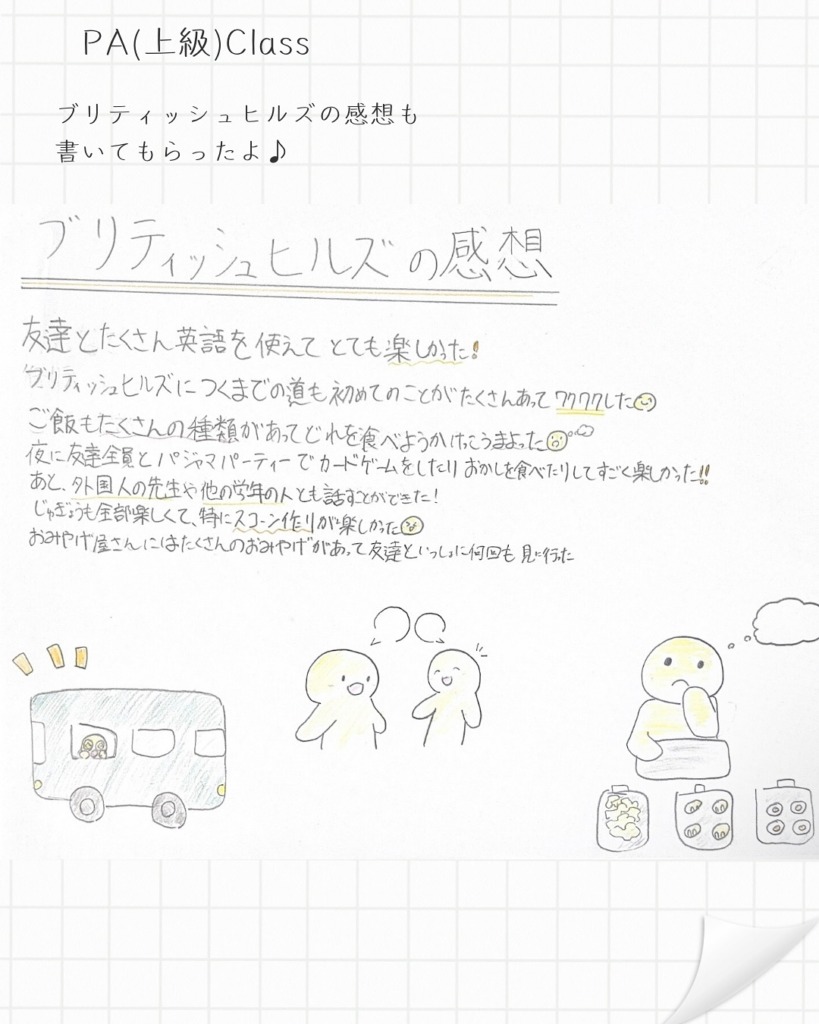 PA(上級)Class
ブリティッシュヒルズの感想も
書いてもらったよ♪
ブリティッシュヒルズの感想
友達とたくさん英語を使えてとても楽しかった!
ブリティッシュヒルズにつくまでの道も初めてのことがたくさんあってワクワクした
ご飯もたくさんの種類があってどれを食べようかけっこうまよった
夜に友達全員とパジャマパーティーでカードゲームをしたりおかしを食べたりしてすごく楽しかった!!
あと、外国人の先生や他の学年の人とも話すことができた!
じゅぎょうも全部楽しくて、特にスコーン作りが楽しかった
おみやげ屋さんにはたくさんのおみやげがあって友達といっしょに何回も見に行った